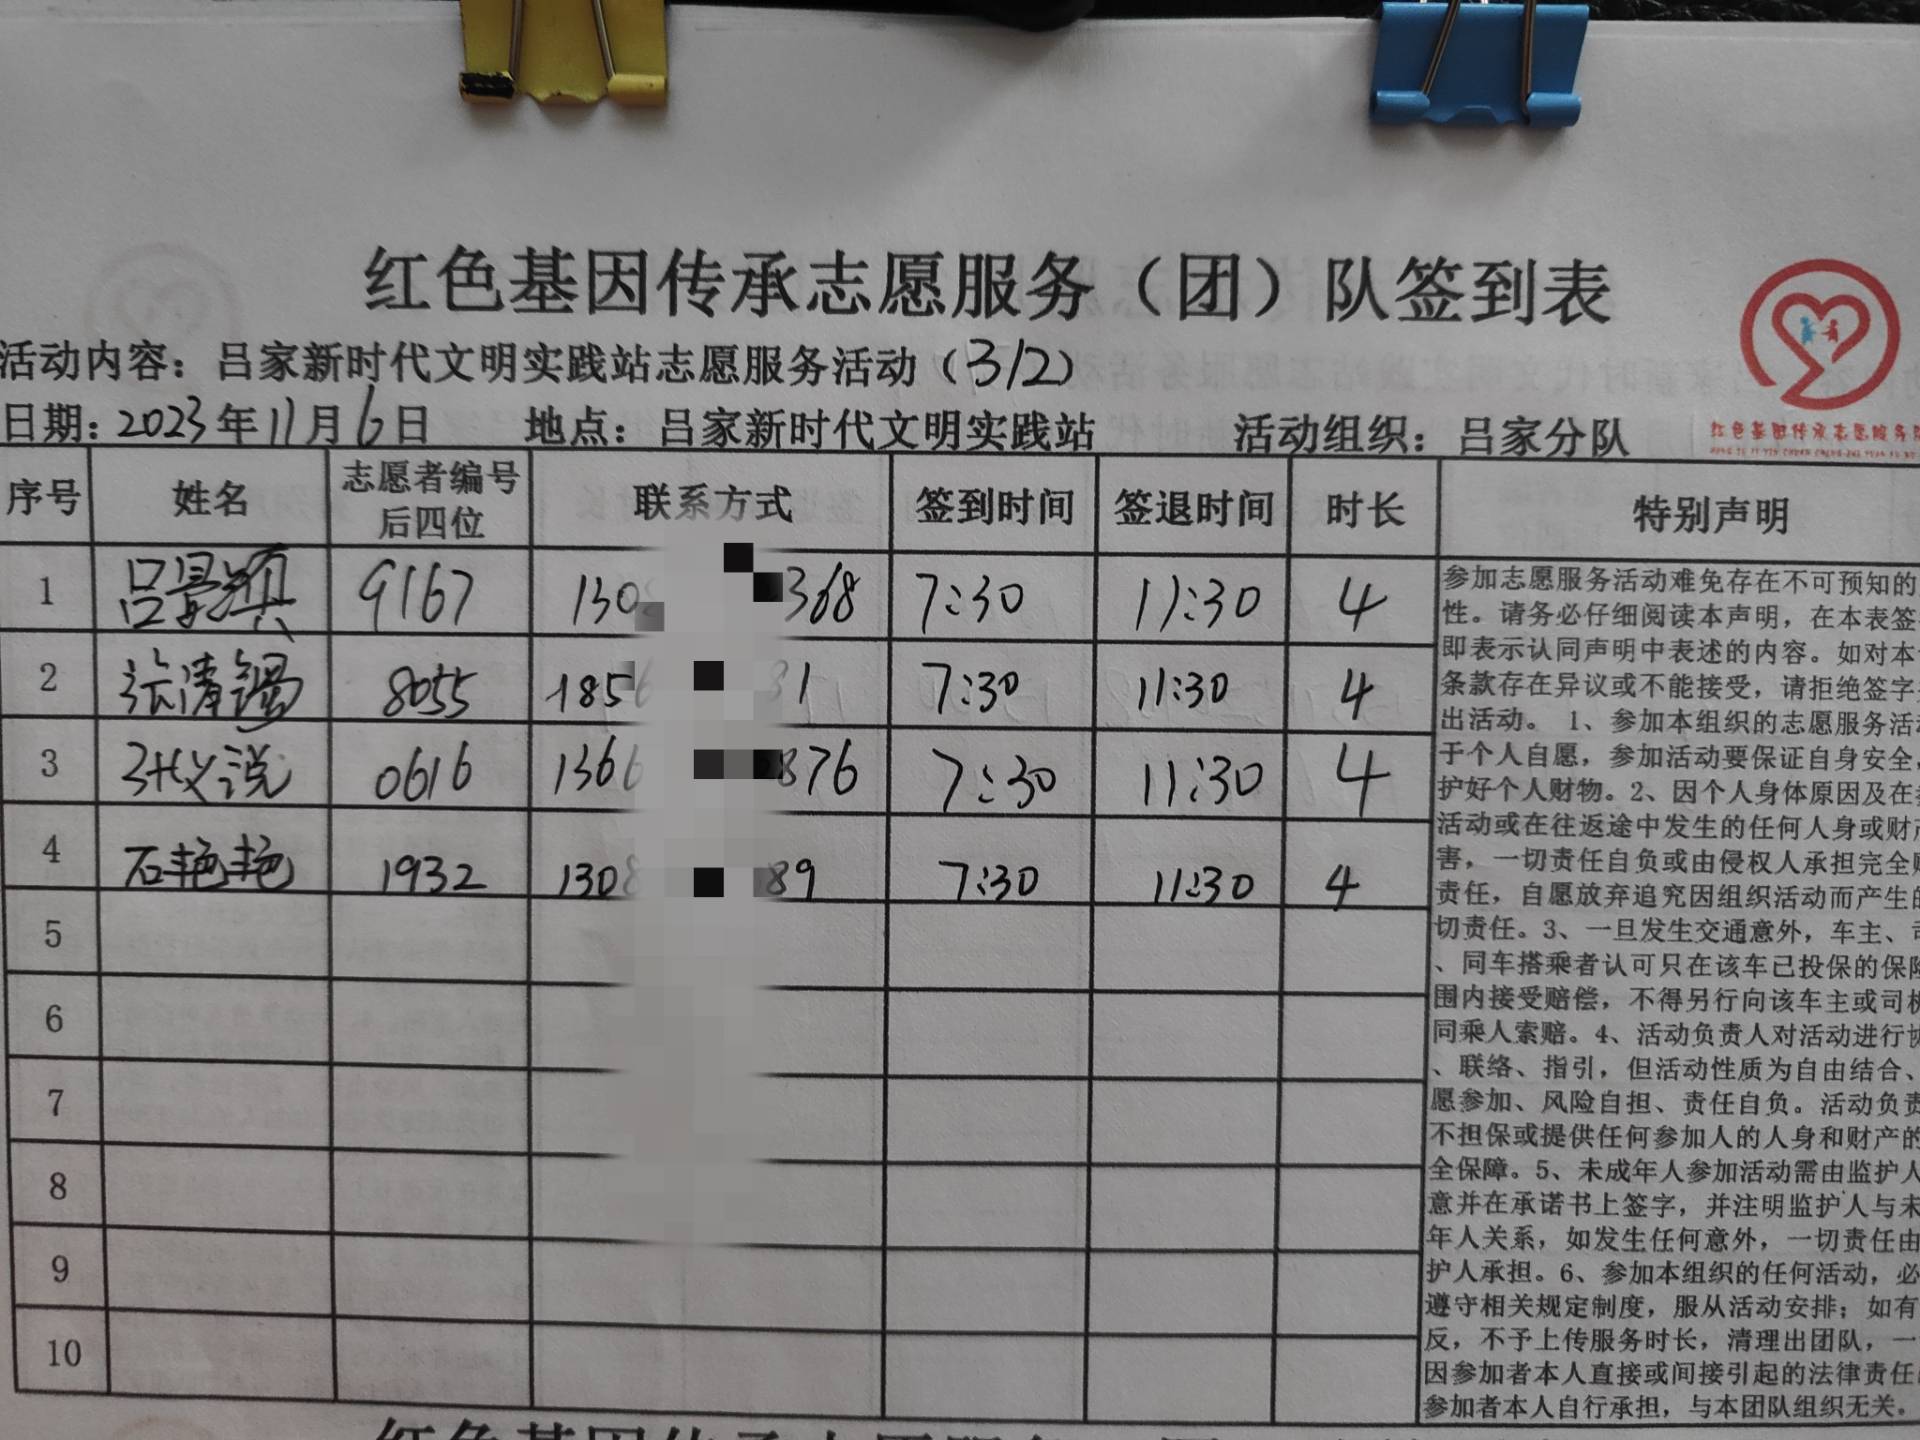 红色基因传承志愿服务（团）队签到表
活动内容：吕家新时代文明实践站志愿服务活动（312）
日期：2023年11月6日 地点：吕家新时代文明实践站 活动组织：吕家分队
红色基因传承志愿服务队
序号 姓名 志愿者编号后四位 联系方式 签到时间 签退时间 时长 特别声明
1 吕景颖 9167 130 368 7:30 11:30 4
2 8055 185 31 7:30 11:30 4
3 张义说 0616 136 876 7:30 11:30 4
4 石艳艳 1932 130 89 7:30 11:30 4
5
6
7
8
9
10
参加志愿服务活动难免存在不可预知的
性。请务必仔细阅读本声明，在本表签
即表示认同声明中表述的内容。如对本
条款存在异议或不能接受，请拒绝签字
出活动。 1、参加本组织的志愿服务活动
于个人自愿，参加活动要保证自身安全，
护好个人财物。2、因个人身体原因及在
活动或在往返途中发生的任何人身或财产
害，一切责任自负或由侵权人承担完全
责任，自愿放弃追究因组织活动而产生的
切责任。3、一旦发生交通意外，车主、
、同车搭乘者认可只在该车已投保的保险
围内接受赔偿，不得另行向该车主或司机
同乘人索赔。4、活动负责人对活动进行
、联络、指引，但活动性质为自由结合、
愿参加、风险自担、责任自负。活动负责
不担保或提供任何参加人的人身和财产的
全保障。5、未成年人参加活动需由监护人
意并在承诺书上签字，并注明监护人与未
年人关系，如发生任何意外，一切责任由
护人承担。6、参加本组织的任何活动，必
遵守相关规定制度，服从活动安排；如有
反，不予上传服务时长，清理出团队，一
因参加者本人直接或间接引起的法律责任
参加者本人自行承担，与本团队组织无关。